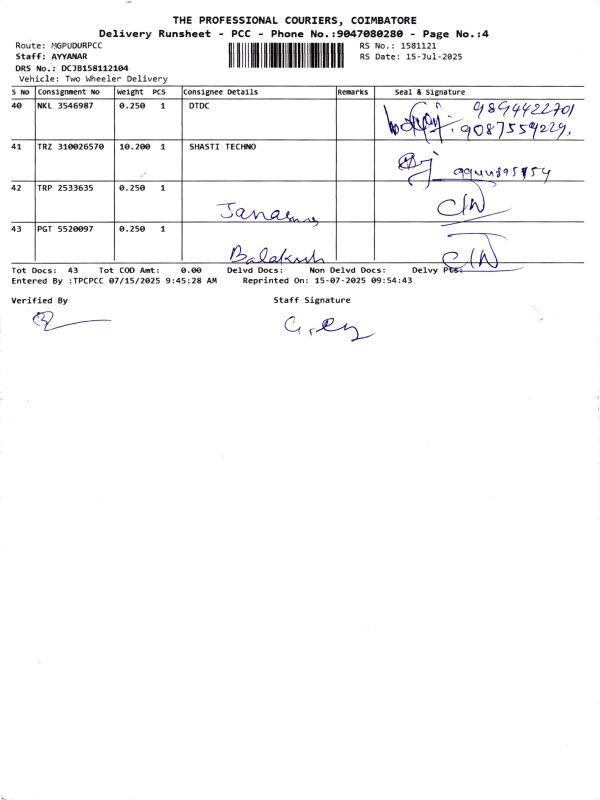 THE PROFESSIONAL COURIERS, COIMBATORE
Delivery Runsheet - PCC - Phone No.:9047080280 - Page No.:4
Route: MGPUDURPCC RS No.: 1581121
Staff: AYYANAR RS Date: 15-Jul-2025
DRS No.: DCJB158112104
Vehicle: Two Wheeler Delivery
S No Consignment No Weight PCS Consignee Details Remarks Seal & Signature
40 NKL 3546987 0.250 1 DTDC 9894422701
9087559229.
41 TRZ 310026570 10.200 1 SHASTI TECHNO
42 TRP 2533635 0.250 1
43 PGT 5520097 0.250 1
Balaksh
Tot Docs: 43 Tot COD Amt: 0.00 Delvd Docs: Non Delvd Docs: Delvy Pts:
Entered By :TPCPCC 07/15/2025 9:45:28 AM Reprinted On: 15-07-2025 09:54:43
Verified By Staff Signature